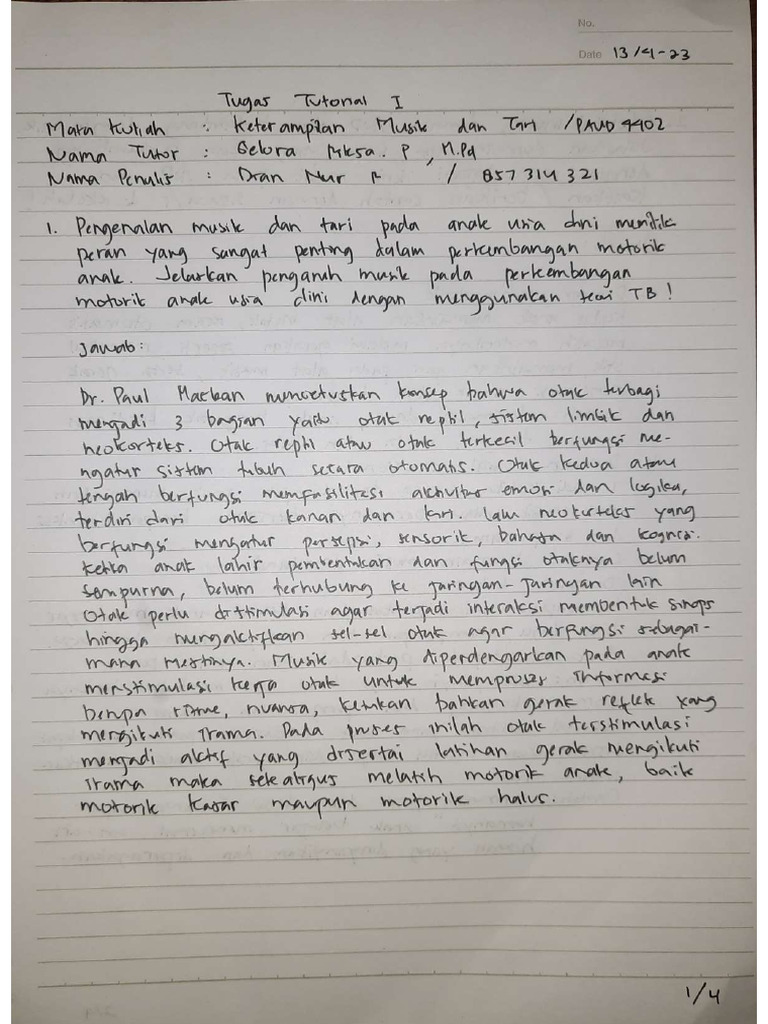 No.
Date 13/4-23
Tugas Tutorial I
Mata Kuliah : Keterampilan Musik dan Tari /PAUD 4402
Nama Tutor : Gelora Mksa. P, M.Pd
Nama Penulis : Dian Nur F / 857 314 321
1. Pengenalan musik dan tari pada anak usia dini memilik
peran yang sangat penting dalam perkembangan motorik
anak. Jelaskan pengaruh musik pada perkembangan
motorik anak usia dini dengan menggunakan teori TB!
Jawab:
Dr. Paul Maclean mencetuskan konsep bahwa otak terbagi
mengadi 3 bagian yaitu otak reptil, sistem limbik dan
neokorteks. Otak reptil atau otak terkecil berfungsi me-
ngatur sistem tubuh secara otomatis. Otak kedua atau
tengah berfungsi memfasilitasi aktivitas emosi dan logika,
terdiri dari otak kanan dan kiri. lalu neokorteks yang
berfungsi mengatur persepsi, sensorik, bahasa dan kognisi.
ketika anak lahir pembentukan dan fungsi otaknya belum
sempurna, belum terhubung ke jaringan-jaringan lain
Otak perlu distimulasi agar terjadi interaksi membentuk sinaps
hingga mengaktifkan sel-sel otak agar berfungsi sebagai-
mana mestinya. Musik yang diperdengarkan pada anak
menstimulasi kerja otak untuk memproses informasi
berupa ritme, nuansa, ketukan bahkan gerak reflek yang
mengikuti irama. Pada proses inilah otak terstimulasi
menjadi aktif yang disertai latihan gerak mengikuti
irama maka sekaligus melatih motorik anak, baik
motorik kasar maupun motorik halus.
1/4